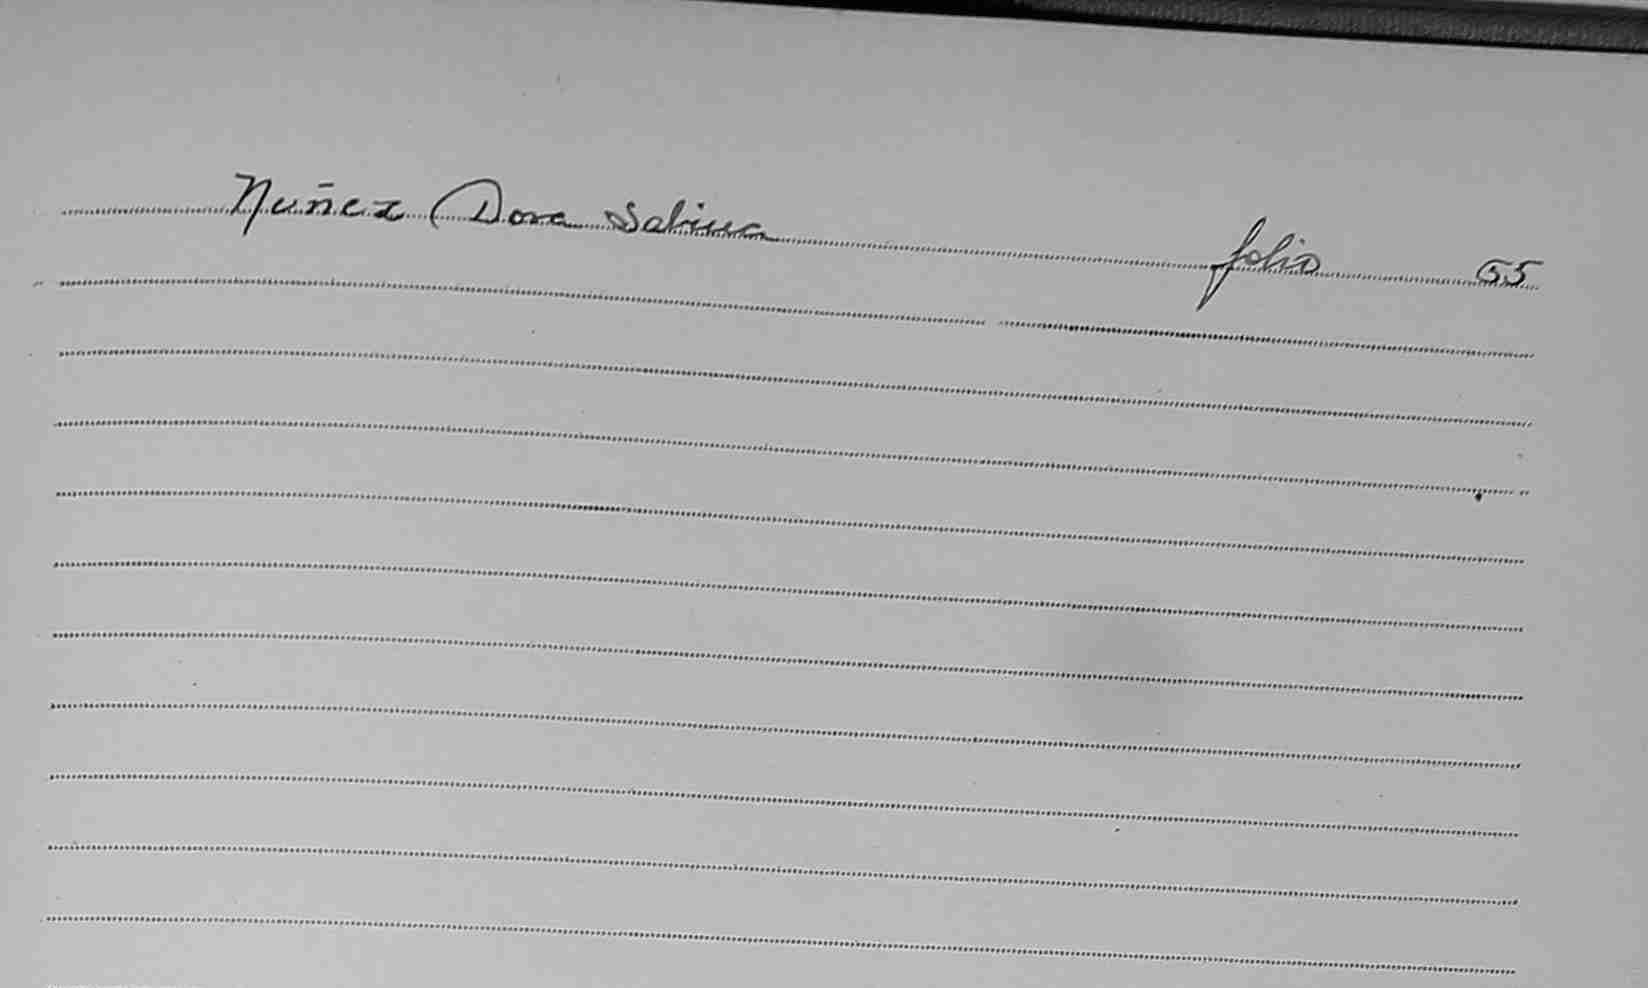 Nuñez Dora Sabina folio 55